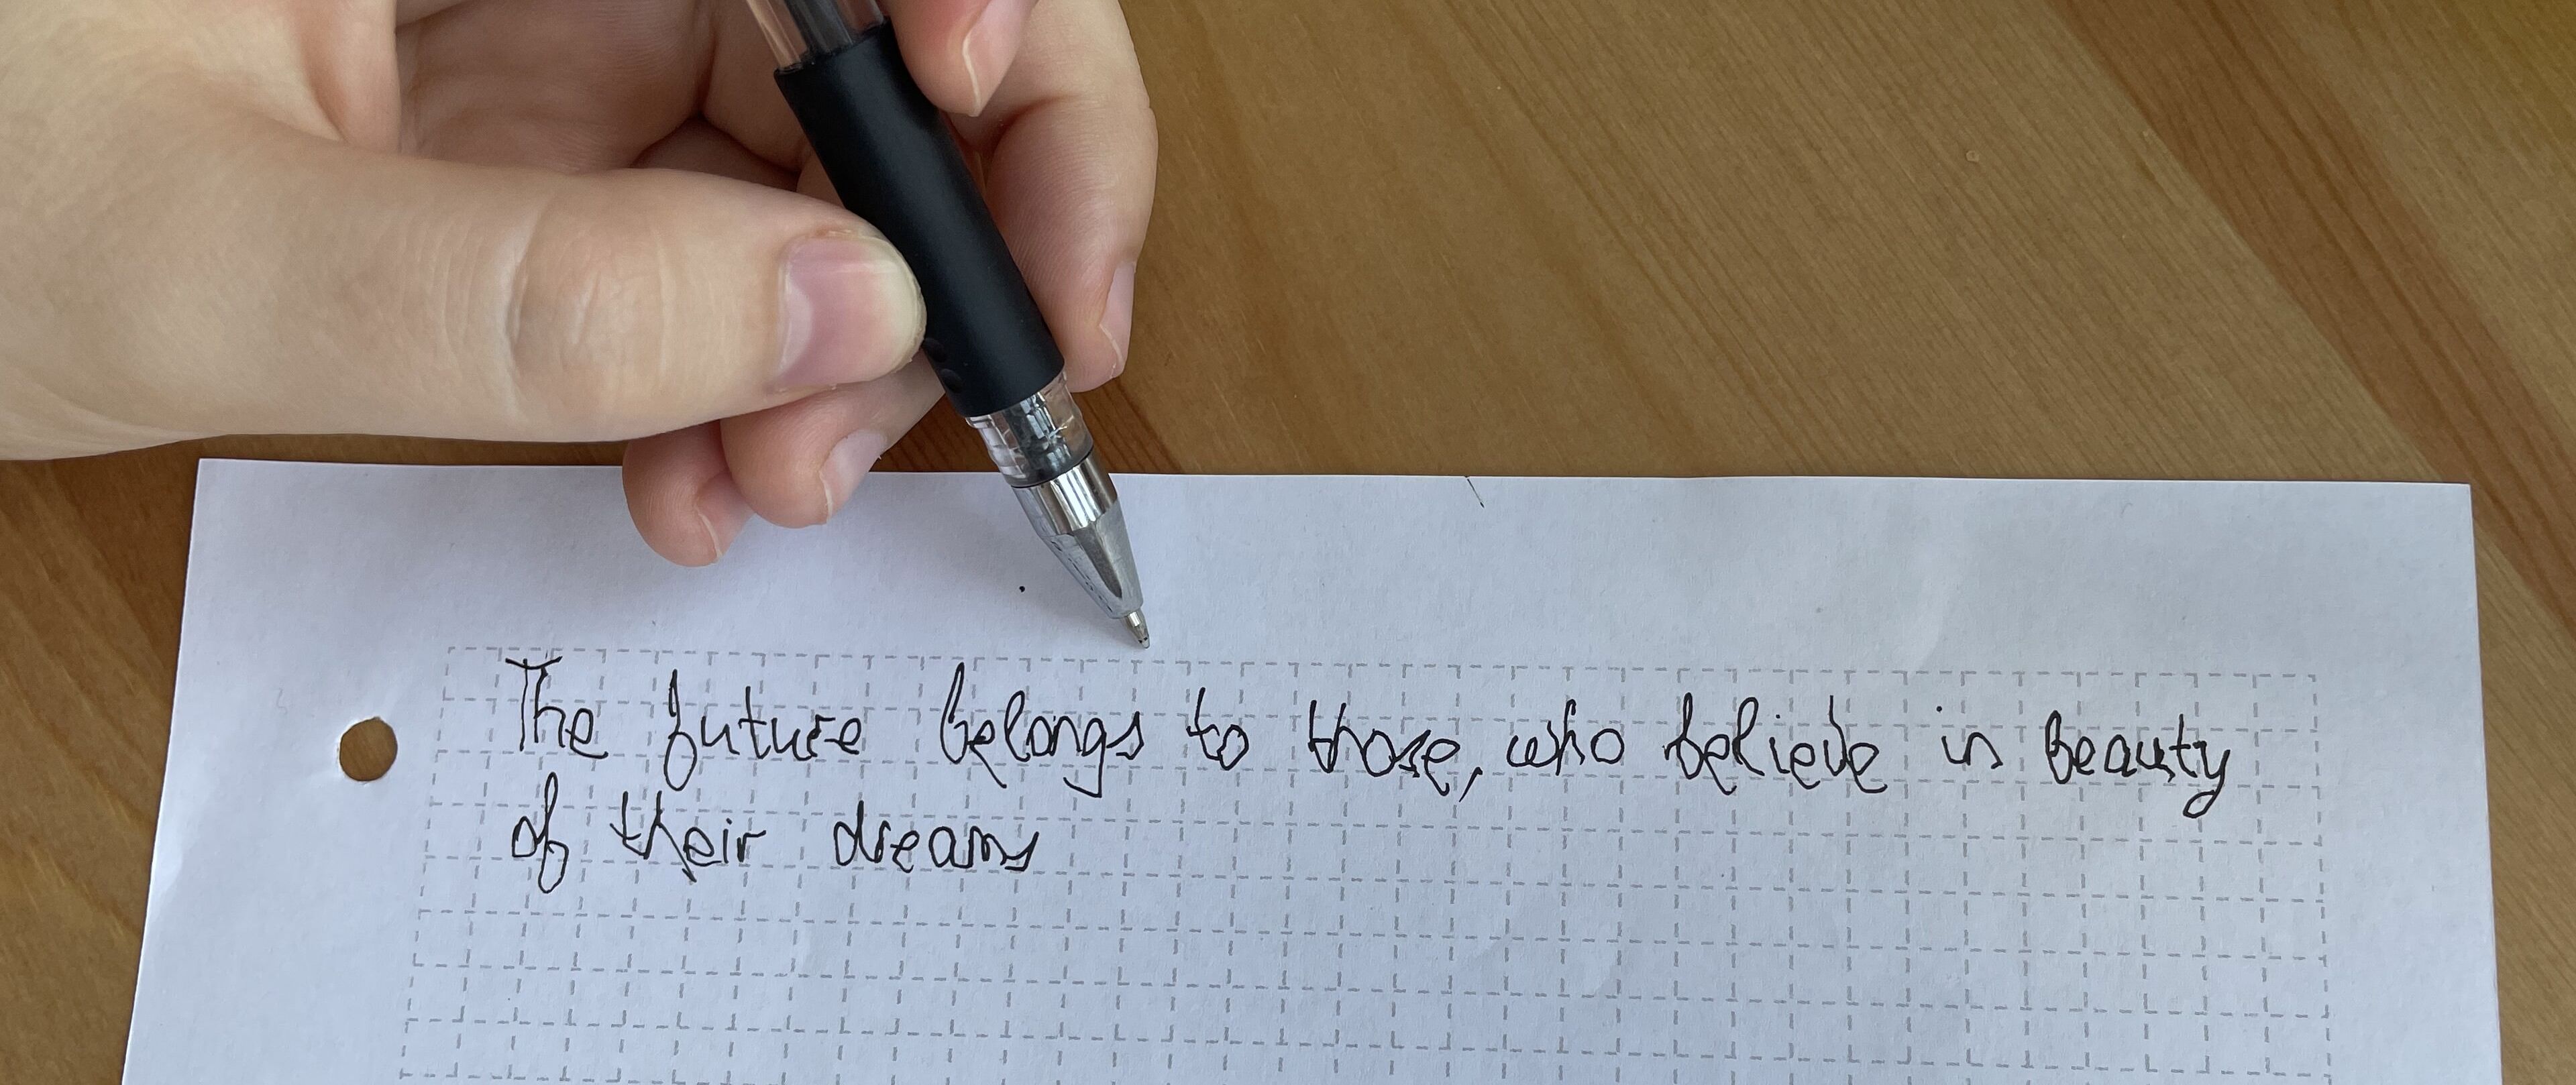 The future belongs to those, who believe in beauty
of their dreams